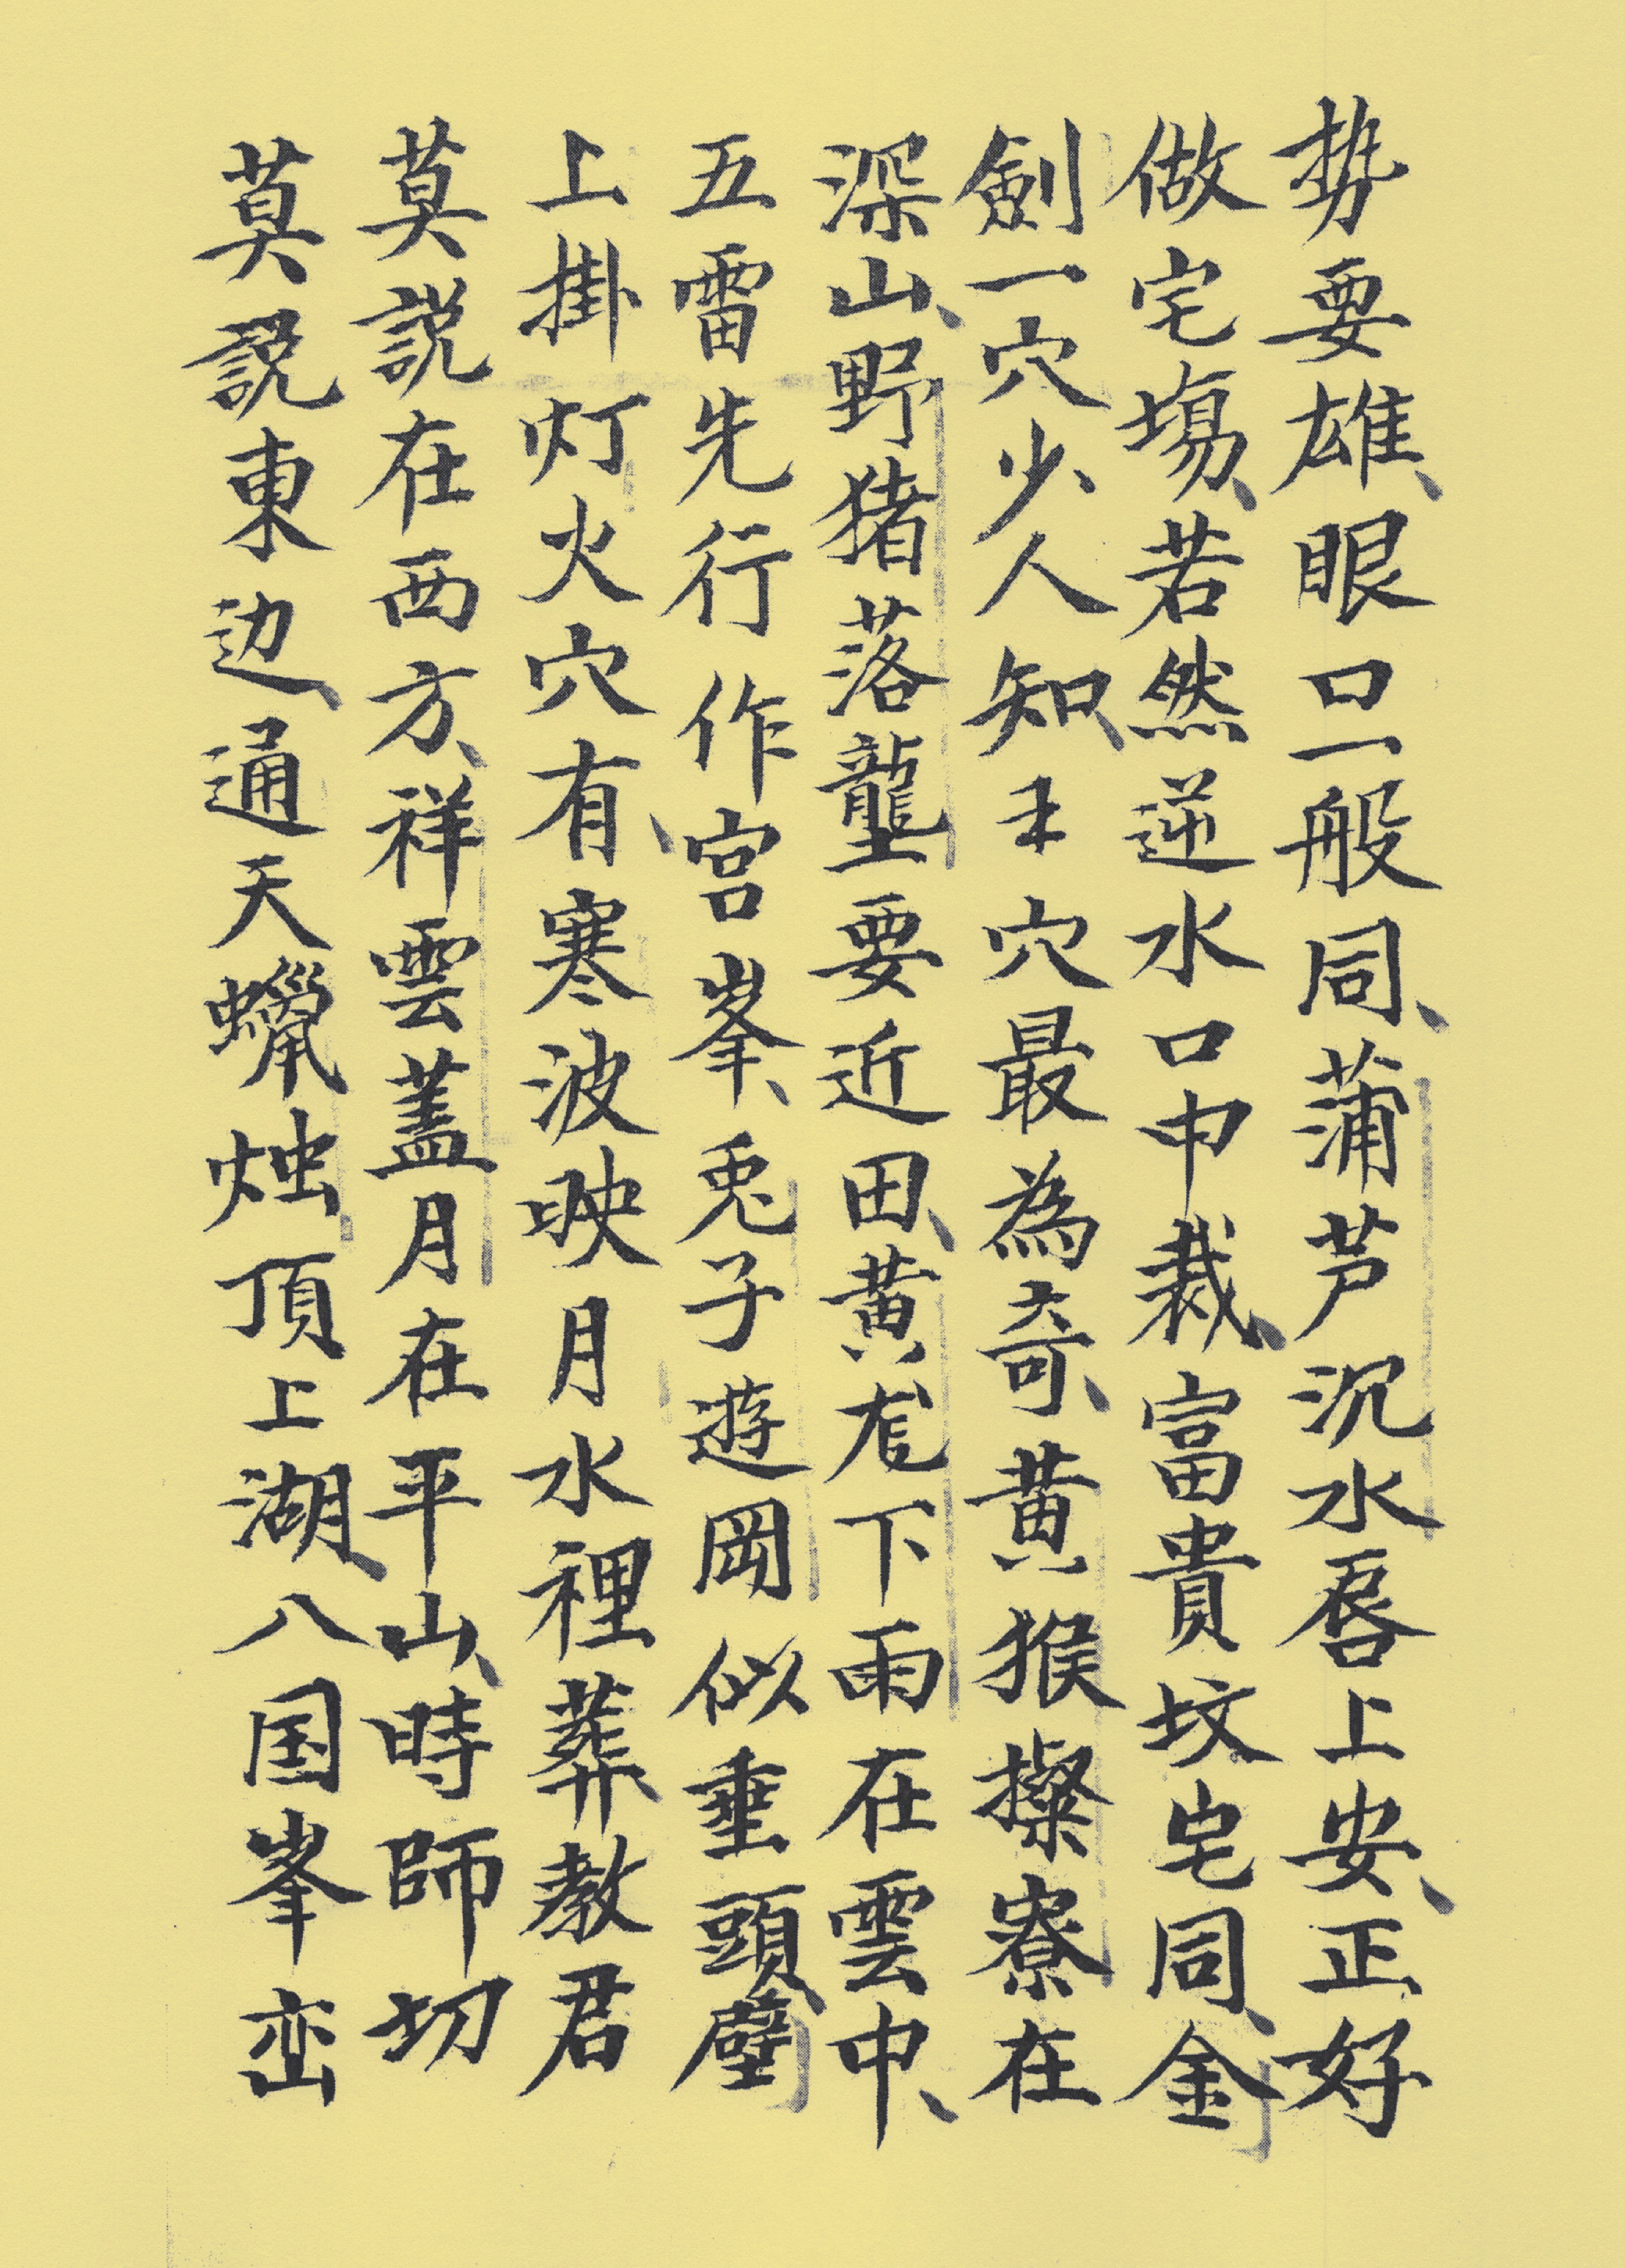 势要雄、眼口一般同、蒲芦沉水唇上安、正好
做宅塲、若然逆水口中裁、富貴坟宅同、金
劍一穴少人知、王穴最為奇、黄猴擽寮在
深山、野猪落壟要近田、黄尨下雨在雲中、
五雷先行作宫峯、兎子遊岡似垂頭、壁
上掛灯火穴有、寒波映月水裡葬、教君
莫説在西方、祥雲蓋月在平山、時師切
莫説東边、通天蠟烛頂上湖、八国峯峦